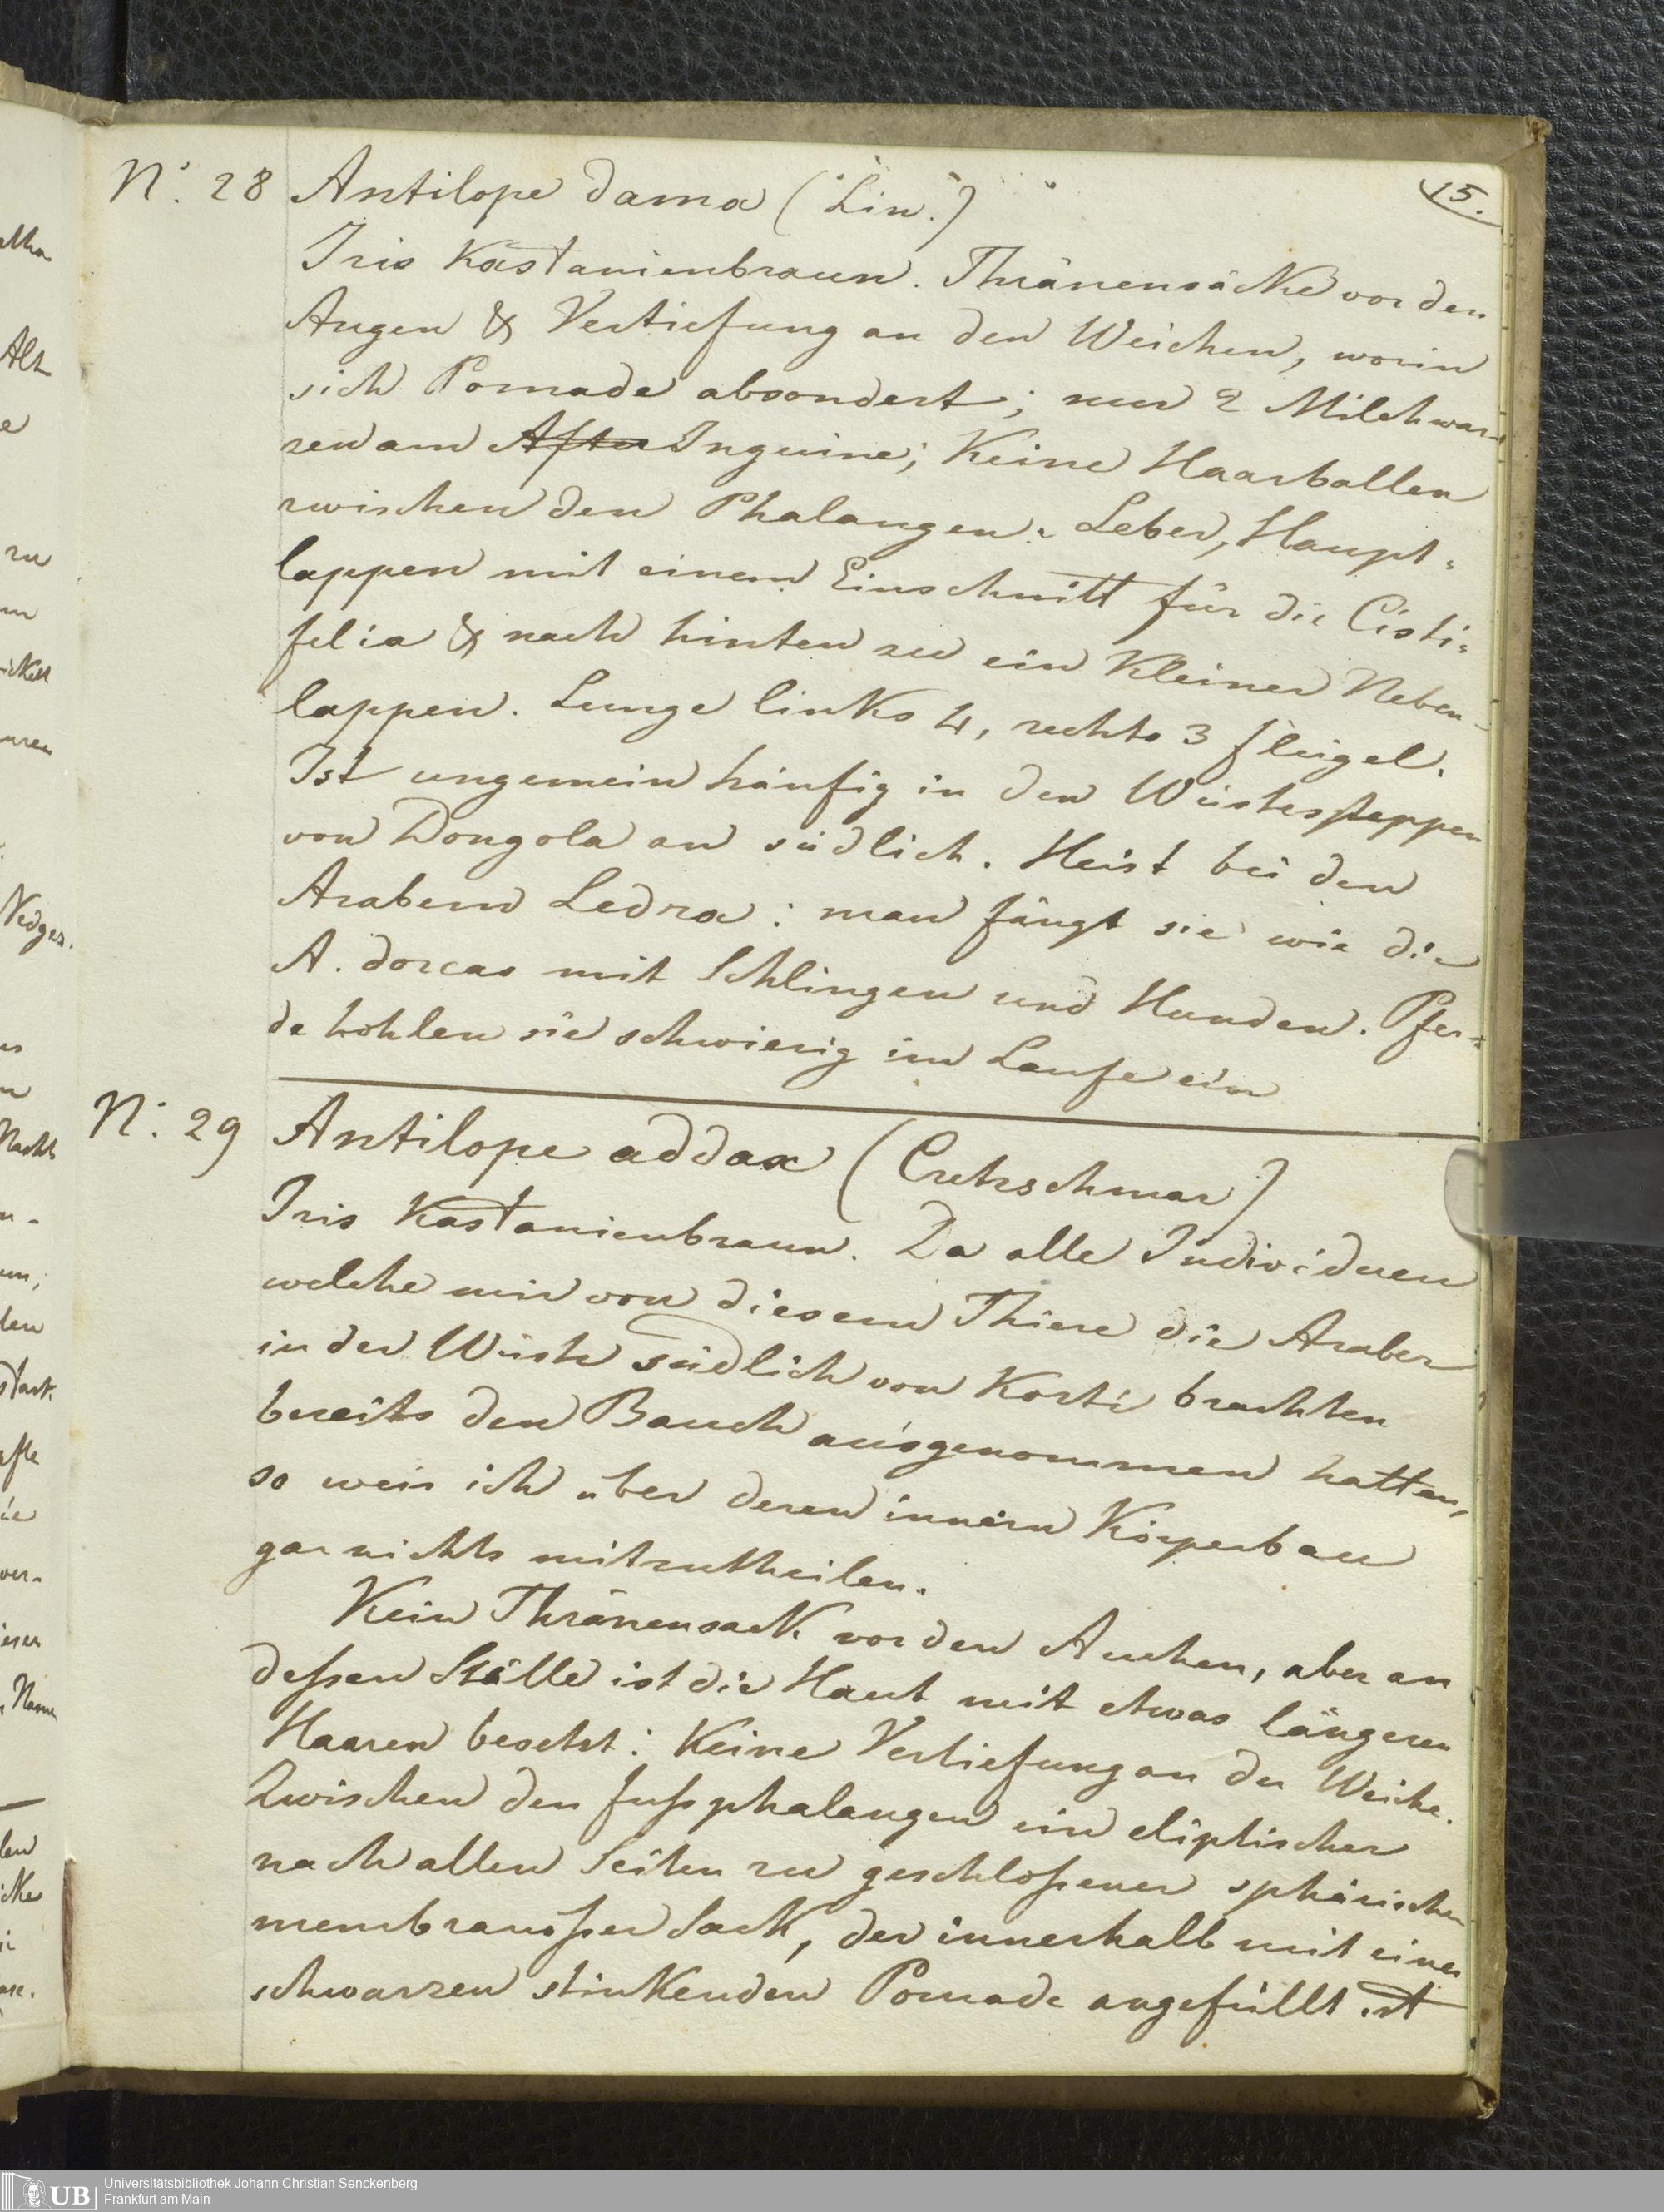 15.
N: 28 Antilope dama (Lin.)
Iris Kastanienbraun. Thränensäcke vor den
Augen & Vertiefung an den Weichen, worin
sich Pomade absondert; nur 2 Milchwar-
zen am After Inguine; Keine Haarballen
zwischen den Phalangen. Leber, Haupt-
lappen mit einem Einschnitt für die Cisti-
felia & nach hinten zu ein Kleiner Neben-
lappen. Lunge links 4, rechts 3 flügel.
Ist ungemein häufig in den Wüstessteppen
von Dongola an südlich. Heist bei den
Arabern Ledra: man fängt sie wie die
A. dorcas mit Schlingen und Hunden. Pfer-
de hohlen sie schwierig im Laufe ein
N: 29 Antilope addax (Cretzschmar)
Iris Kastanienbraun. Da alle Individuen
welche mir von diesem Thiere die Araber
in der Wüste südlich von Korti brachten
bereits den Bauch ausgenommen hatten,
so weis ich über deren innern Körperbau
gar nichts mitzutheilen.
Kein Thränensack vor den Auchen, aber an
deßen Ställe ist die Haut mit etwas längeren
Haaren besetzt: Keine Vertiefung an der Weiche.
Zwischen den fußphalangen ein eliptischer
nach allen Seiten zu geschloßener sphärischer
membranoßer Sack, der innerhalb mit einer
schwarzen stinkenden Pomade angefüllt ist
Universitätsbibliothek Johann Christian Senckenberg
Frankfurt am Main
UB